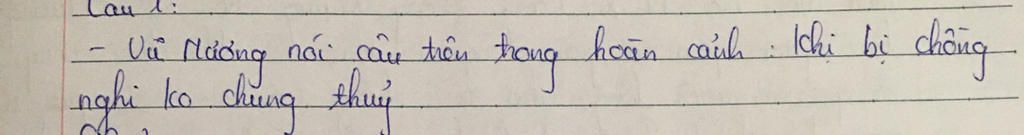 Câu 1:
- Vũ Nương nói câu trên trong hoàn cảnh: Khi bị chồng
nghi ko chung thuỷ